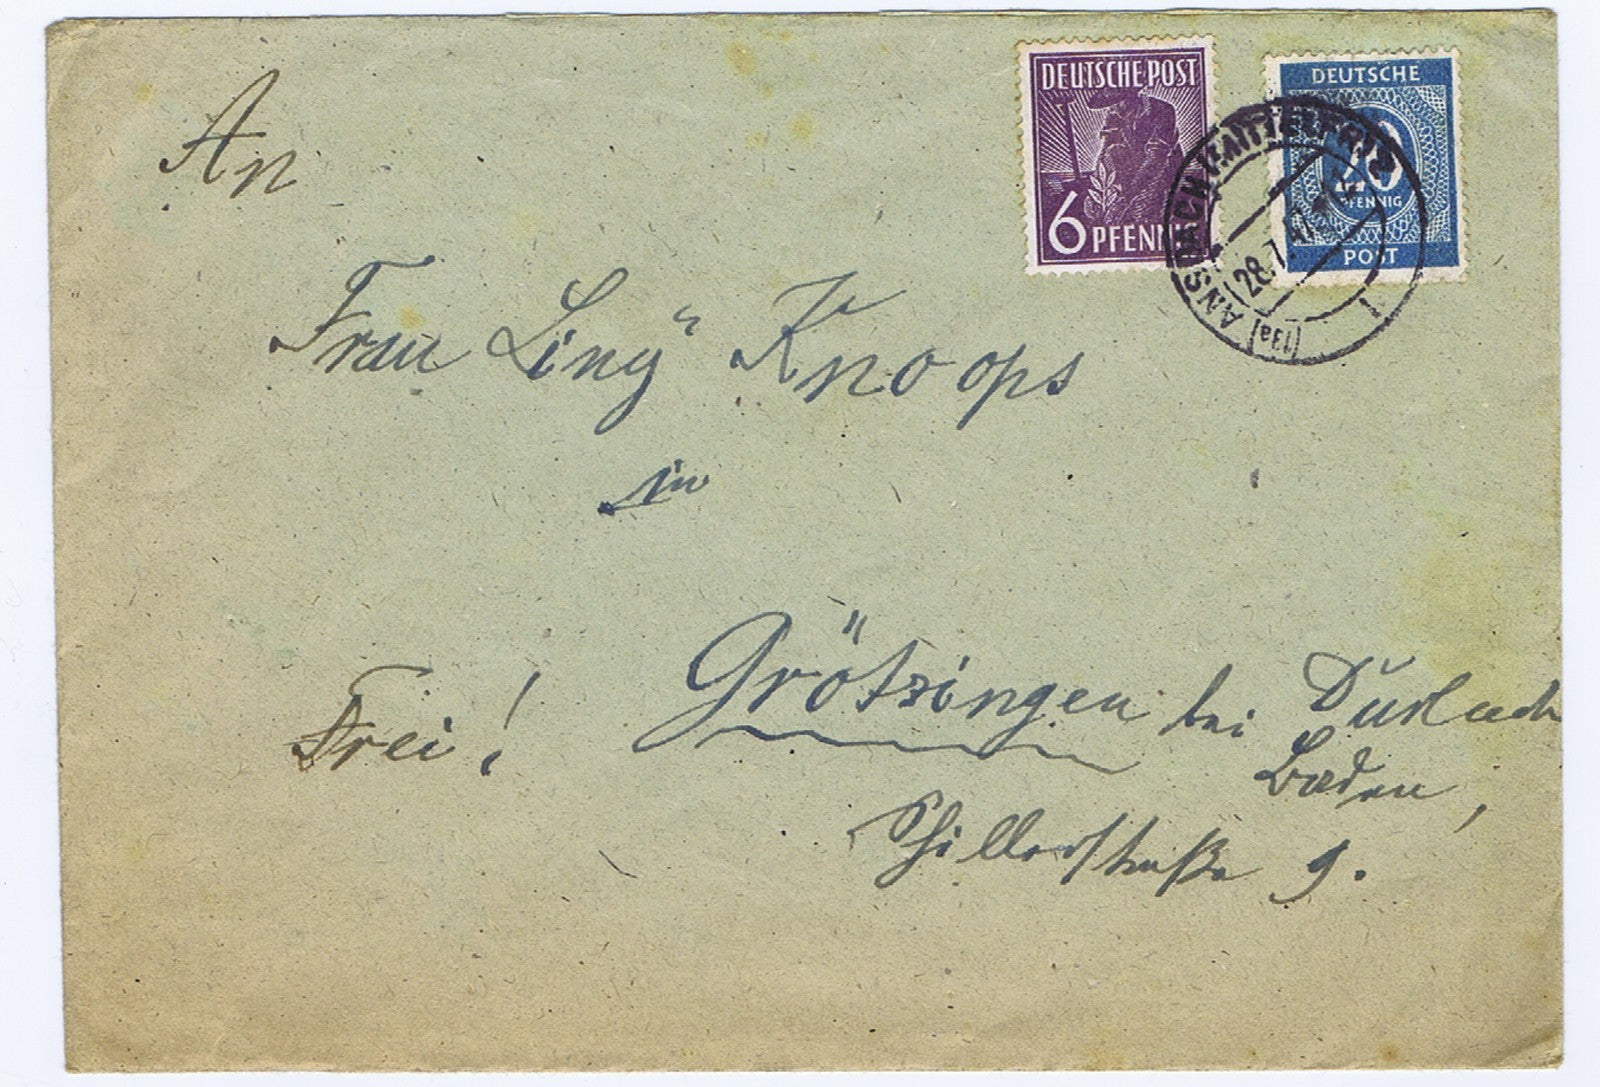 An
DEUTSCHE POST
6 PFENN
DEUTSCHE
20
PFENNIG
POST
ANSBACH (MITTELFR) 2
28.7.47
(13a)
Frau Liny Knoops
in
Grötzingen bei Durlach
Baden,
Frei!
Schillerstraße 9.